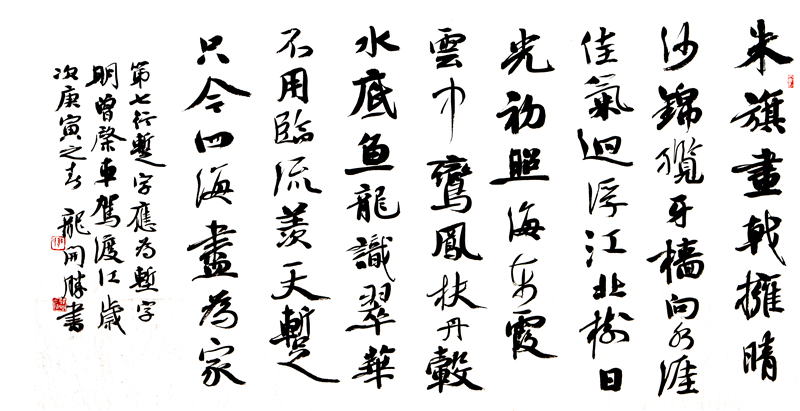 朱旗畫戟擁晴
沙錦纜牙檣向水涯
佳氣迥浮江北樹日
光初照海東霞
雲中鸞鳳扶丹轂
水底魚龍識翠華
不用臨流羨天蹔
只今四海盡為家
第七行蹔字應為塹字
明曾棨車駕渡江歲
次庚寅之春 龍開勝書